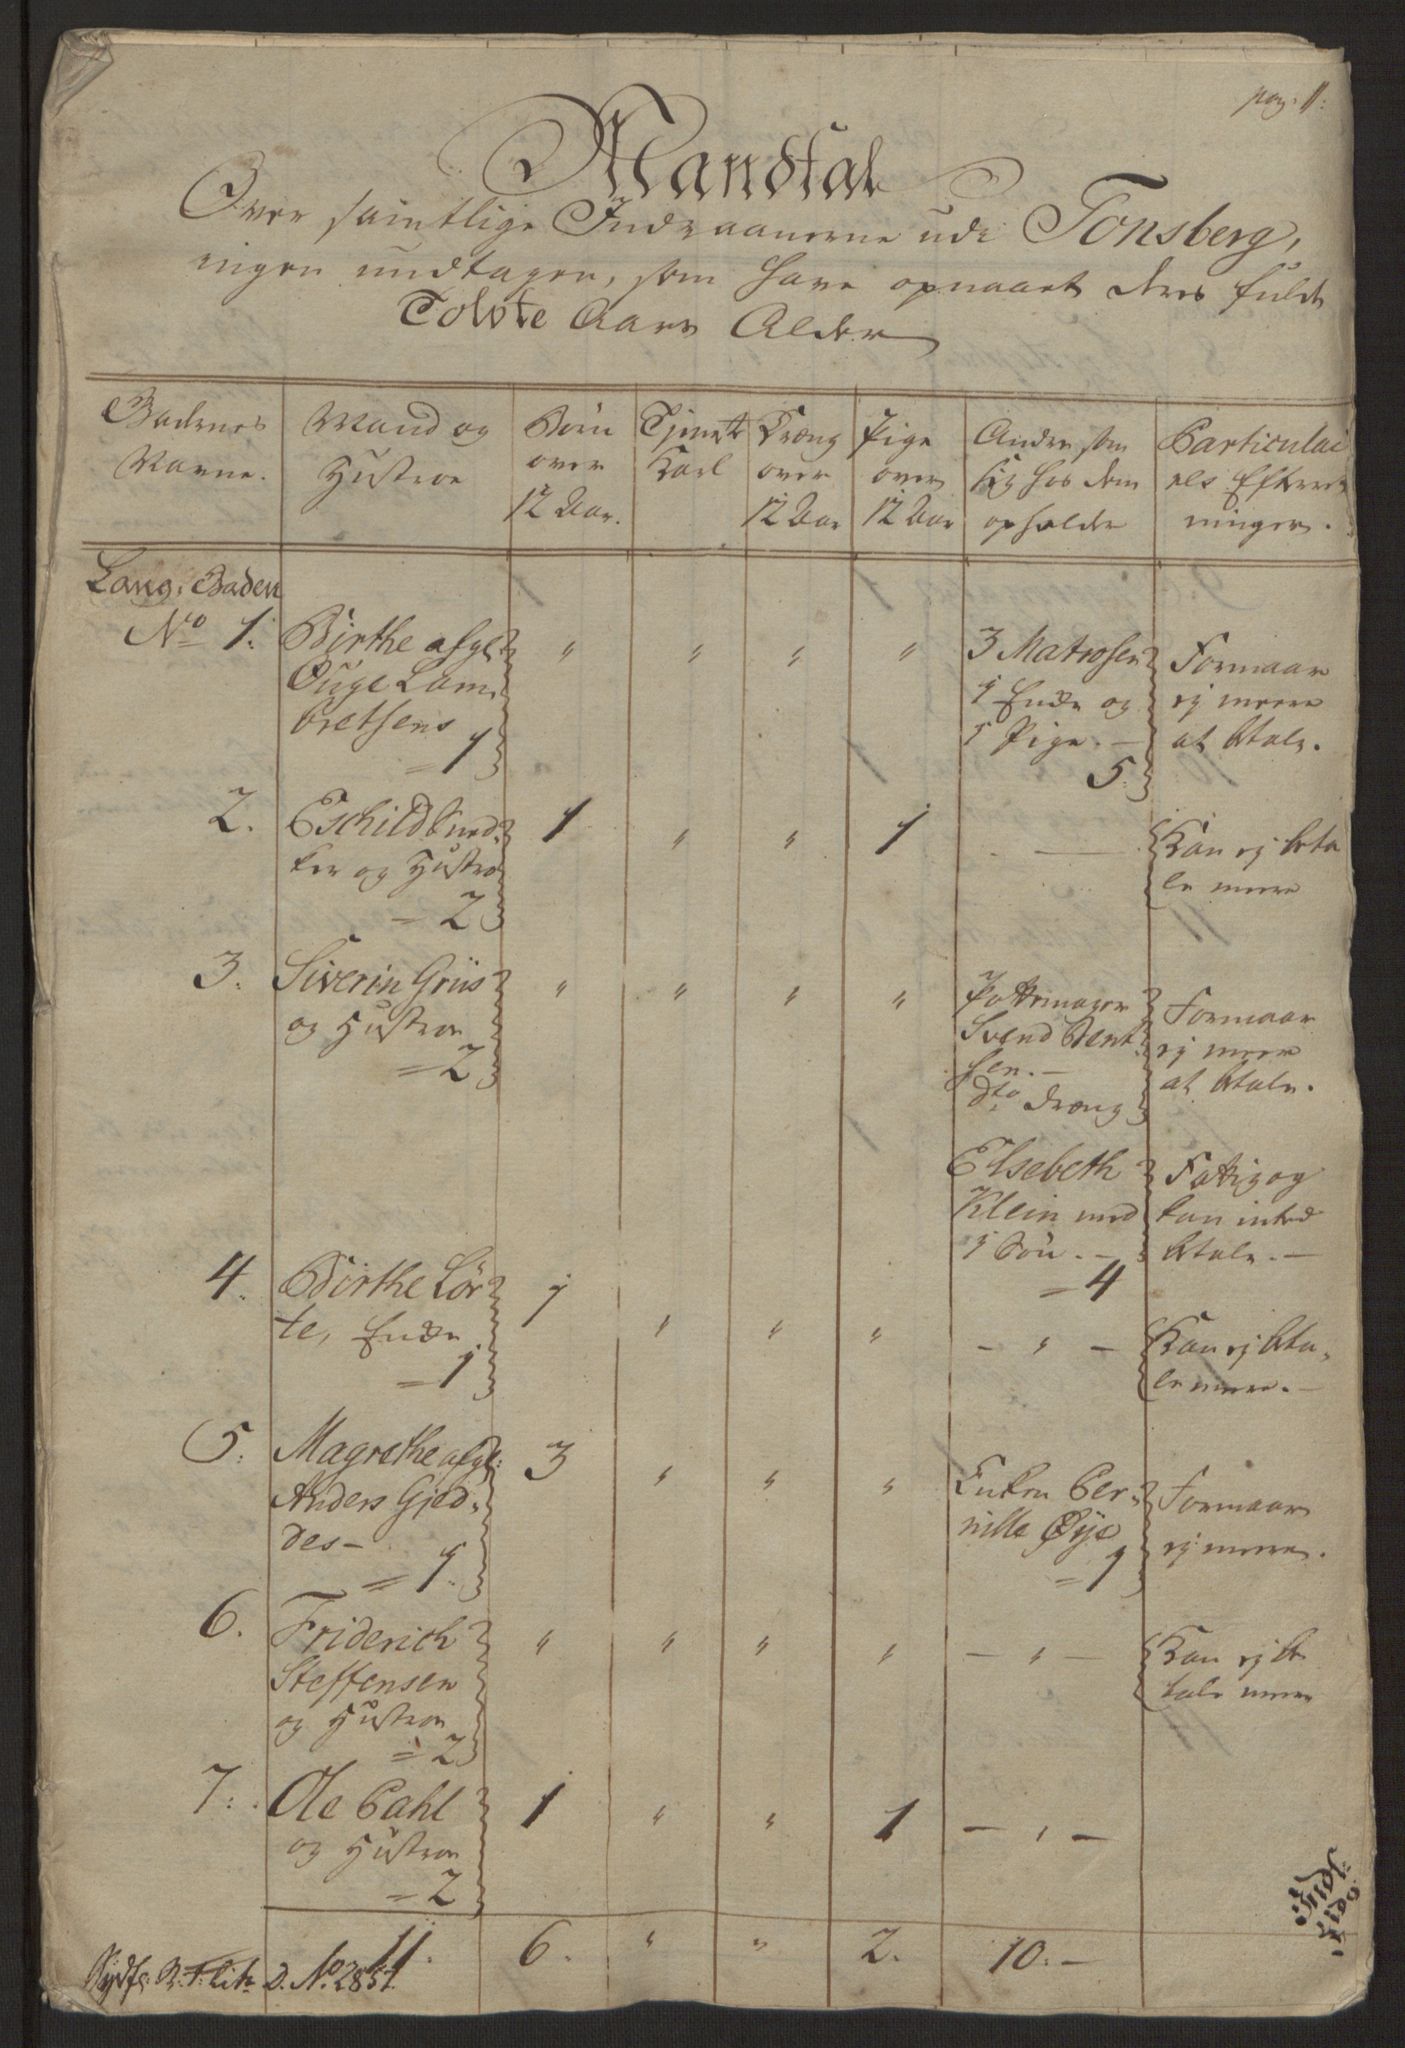 pag: 1:
Mandtal
Over samtlige Indvaanerne udi Tonsberg,
ingen undtagen, som have opnaaet deres fulde
Tolvte Aars Alder
Gadernes Navne.
Mand og Hustroe
Børn over 12 Aar.
Tjeneste Karl
Dræng over 12 Aar
Pige over 12 Aar
Andre som sig hos dem opholder
Particulai
Lang-Gaden
No 1.
Birthe afgl:
Ouge Lam-
bretsens
= 1
" " " "
3 Matroser
1 Enke og
1 Pige. —
5.
Formaar
ej meere
at btale.
2.
Eschild
og Hustroe
= 2
1 " " 1
—
Kan ej beta
le meere
3.
Siverin Griis
og Hustroe
= 2
" " " "
Pottemager
Svend Bent-
sen. —
dto dræng
Formaar
ej meere
at btale.
Elsebeth
Klein med
1 Søn. —
= 4
Fattig og
kan intet
btale. —
4.
Birthe Lør-
te, Enke
= 1
1 " " "
— " —
Kan ej bta-
le meere. —
5.
Magrethe afgl:
Anders Gjed-
des —
= 1.
3 " " "
Enken Per-
nille Øye
= 1
Formaar
ej meere.
6.
Friderich
Steffensen
og Hustroe
= 2
" " " "
— " —
Kan ej be
tale meere
7.
Ole Pahl
og Hustroe
= 2
1 " " 1
— " —
11. 6. " " 2. 10. —
D. No. 2857.